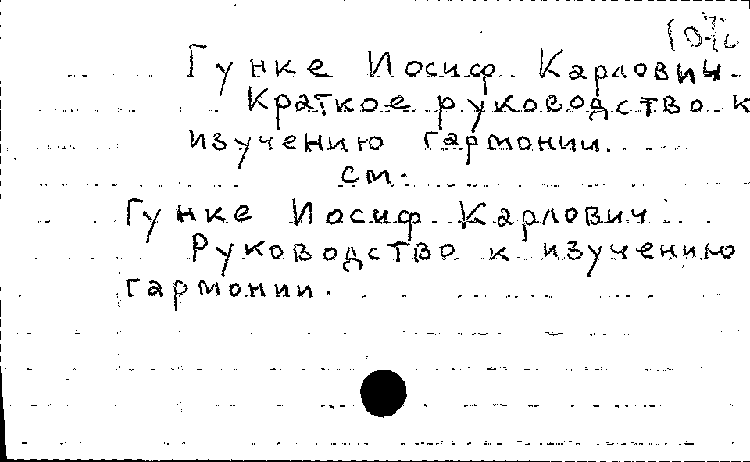 Гунке Иосиф Карлович.
Краткое руководство к
изучению гармонии.
см.
Гунке Иосиф Карлович
Руководство к изучению
гармонии.